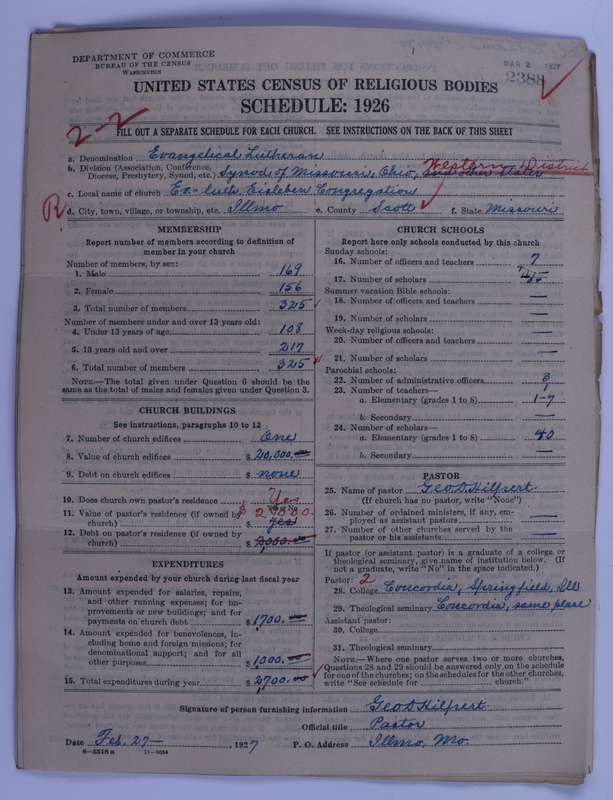 DEPARTMENT OF COMMERCE
BUREAU OF THE CENSUS
WASHINGTON
MAR 2 1927
2388
UNITED STATES CENSUS OF RELIGIOUS BODIES
SCHEDULE: 1926
2-2
FILL OUT A SEPARATE SCHEDULE FOR EACH CHURCH. SEE INSTRUCTIONS ON THE BACK OF THIS SHEET
a. Denomination Evangelical Lutheran
b. Division (Association, Conference, Diocese, Presbytery, Synod, etc.) Synod of Missouri, Ohio, and other States Western District
c. Local name of church Ev. Luth. Eisleben Congregation
R d. City, town, village, or township, etc. Illmo e. County Scott f. State Missouri
MEMBERSHIP
Report number of members according to definition of
member in your church
Number of members, by sex:
1. Male 169
2. Female 156
3. Total number of members 325
Number of members under and over 13 years old:
4. Under 13 years of age 108
5. 13 years old and over 217
6. Total number of members 325
NOTE.—The total given under Question 6 should be
same as the total of males and females given under Question 3.
CHURCH BUILDINGS
See instructions, paragraphs 10 to 12
7. Number of church edifices One
8. Value of church edifices $ 20,000.00
9. Debt on church edifices $ none
10. Does church own pastor's residence Yes
11. Value of pastor's residence (if owned by
church) $ 2000. yes
12. Debt on pastor's residence (if owned by
church) $ 2,000.00
EXPENDITURES
Amount expended by your church during last fiscal year
13. Amount expended for salaries, repairs,
and other running expenses; for im-
provements or new buildings; and for
payments on church debt $ 1700.00
14. Amount expended for benevolences, in-
cluding home and foreign missions; for
denominational support; and for all
other purposes $ 1000.00
15. Total expenditures during year $ 2,700.00
CHURCH SCHOOLS
Report here only schools conducted by this church
Sunday schools:
16. Number of officers and teachers 7
17. Number of scholars
Summer vacation Bible schools:
18. Number of officers and teachers —
19. Number of scholars —
Week-day religious schools:
20. Number of officers and teachers —
21. Number of scholars —
Parochial schools:
22. Number of administrative officers 3
23. Number of teachers—
a. Elementary (grades 1 to 8) 1-7
b. Secondary —
24. Number of scholars—
a. Elementary (grades 1 to 8) 40
b. Secondary —
PASTOR
25. Name of pastor Geo. D. Hilpert.
(If church has no pastor, write "None")
26. Number of ordained ministers, if any, em-
ployed as assistant pastors —
27. Number of other churches served by the
pastor or his assistants —
If pastor (or assistant pastor) is a graduate of a college or
theological seminary, give name of institution below. (If
not a graduate, write "No" in the space indicated.)
Pastor: 2
28. College Concordia, Springfield, Ills
29. Theological seminary Concordia, same place
Assistant pastor:
30. College
31. Theological seminary
NOTE.—Where one pastor serves two or more churches,
Questions 28 and 29 should be answered only on the schedule
for one of the churches; on the schedules for the other churches,
write "See schedule for church."
Signature of person furnishing information Geo D Hilpert.
Official title Pastor
Date Feb. 27— , 1927 P. O. Address Illmo, Mo.
8—3318a 11—9054